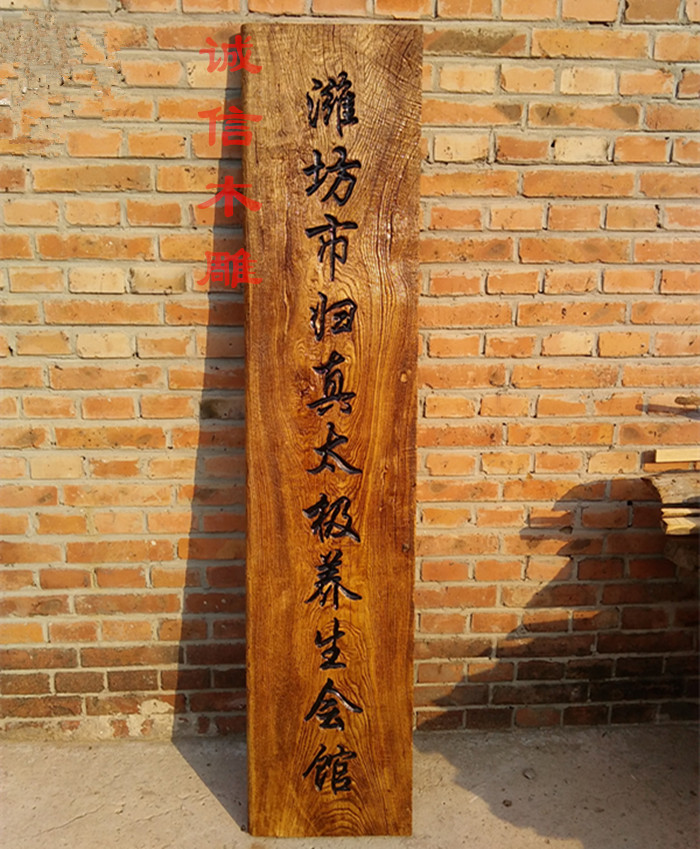 诚信木雕
潍坊市归真太极养生会馆